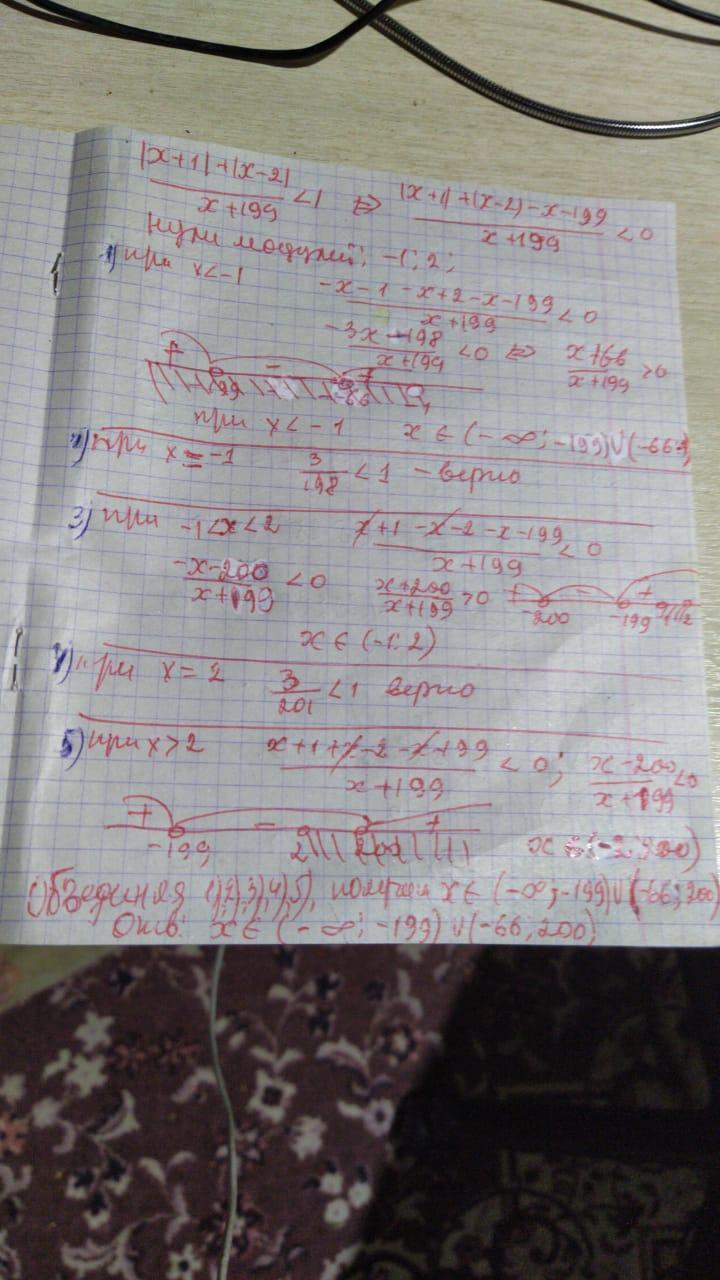 |x+1|+|x-2| / x+199 < 1 ⇔ |x+1|+|x-2|-x-199 / x+199 < 0
Нули модулей: -1; 2;
1) при x<-1 -x-1-x+2-x-199 / x+199 < 0
-3x-198 / x+199 < 0 ⇔ x+66 / x+199 > 0
+ - +
-199 -66 -1
при x<-1 x∈(-∞;-199)∪(-66;
2) при x=-1 3/198 < 1 - верно
3) при -1<x<2 x+1-x-2-x-199 / x+199 < 0
-x-200 / x+199 < 0 x+200 / x+199 > 0 + - +
-200 -199
x∈(-1;2)
4) при x=2 3/201 < 1 верно
5) при x>2 x+1+x-2-x-199 / x+199 < 0; x-200 / x+199 < 0
+ - +
-199 2
Объединяя 1),2),3),4),5), получаем x∈(-∞;-199)∪(-66;200)
Отв: x∈(-∞;-199)∪(-66;200)